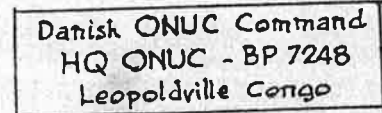 Danish ONUC Command
HQ ONUC - BP 7248
Leopoldville Congo